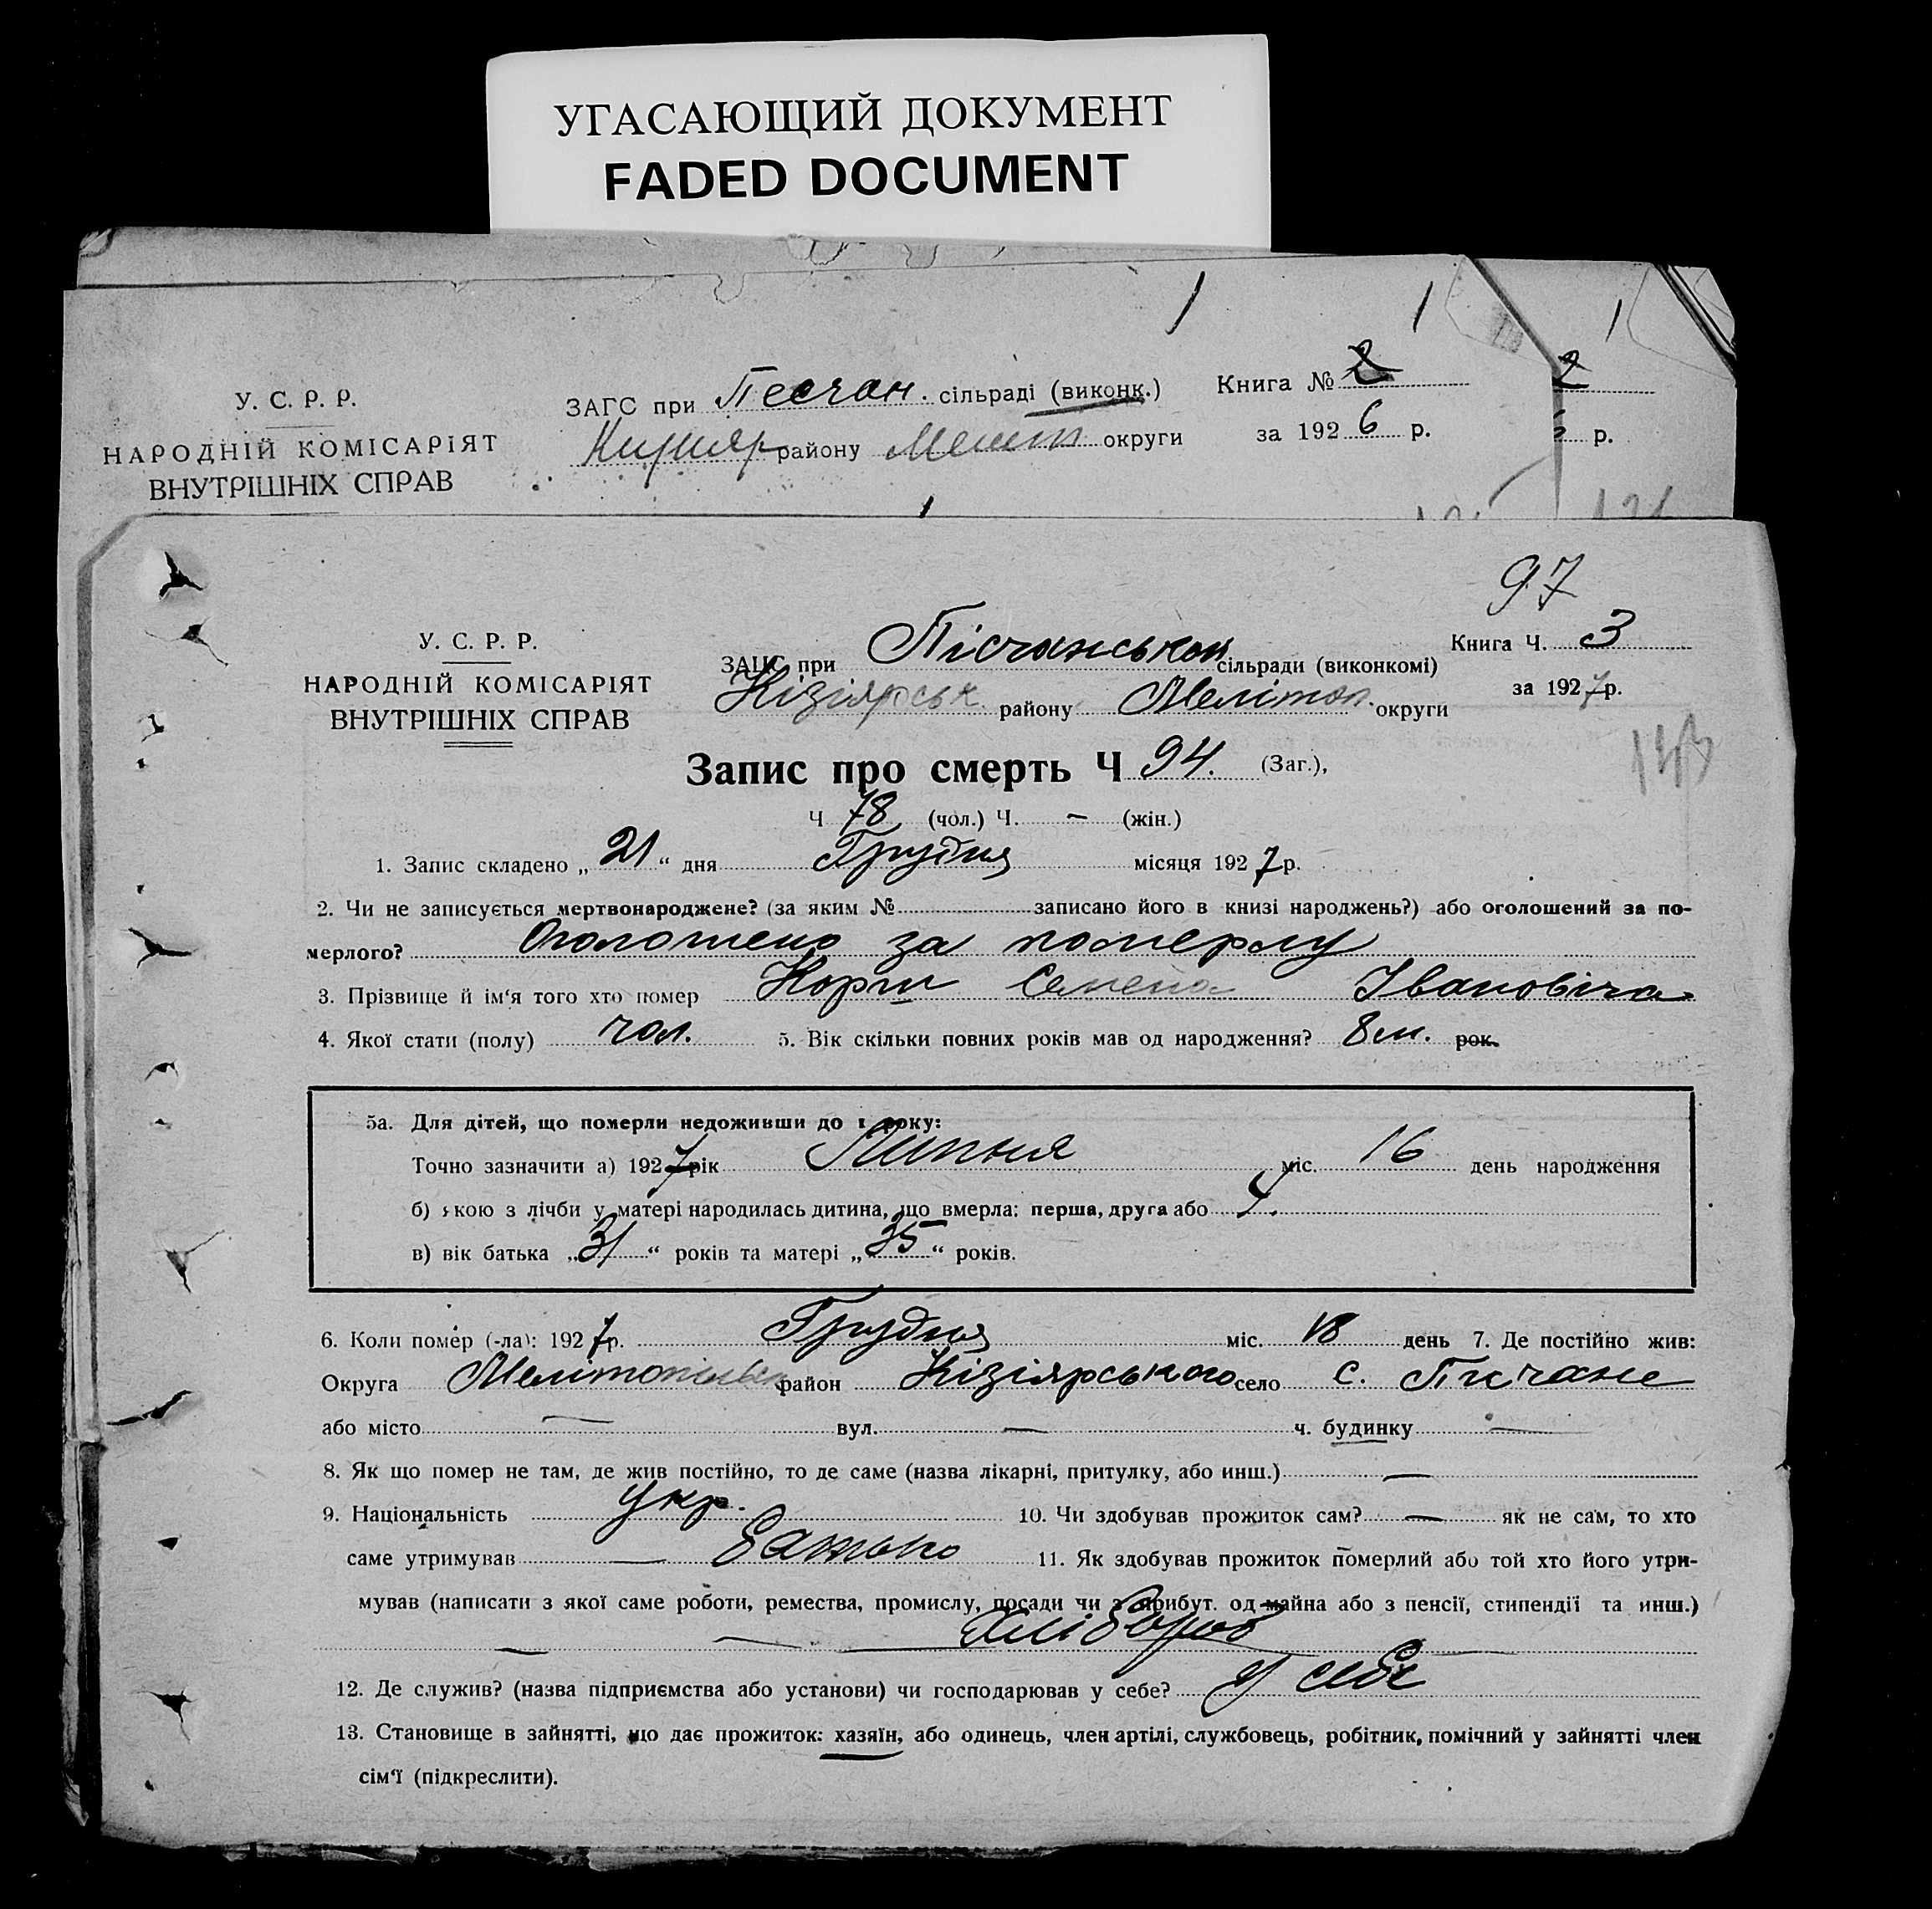 УГАСАЮЩИЙ ДОКУМЕНТ
FADED DOCUMENT
У. С. Р. Р.
НАРОДНІЙ КОМІСАРІЯТ
ВНУТРІШНІХ СПРАВ
ЗАГС при Песчан. сільраді (виконк.)
району Меліт округи
Книга № 2
за 1926 р.
2
р.
97
У. С. Р. Р.
НАРОДНІЙ КОМІСАРІЯТ
ВНУТРІШНІХ СПРАВ
ЗАЦС при Пісчанськой сільради (виконкомі)
Кізіярськ району Мелітоп. округи
Книга Ч. 3
за 1927 р.
Запис про смерть Ч 94. (Заг.),
Ч 78 (чол.) Ч. – (жін.)
1. Запис складено „ 21 “ дня Грудня місяця 1927 р.
2. Чи не записується мертвонароджене? (за яким № записано його в книзі народжень?) або оголошений за по-
мерлого? Оголошено за померлу
3. Прізвище й ім'я того хто помер Корж Семена Івановіча
4. Якої стати (полу) чол. 5. Вік скільки повних років мав од народження? 8 м. рок.
5а. Для дітей, що померли недоживши до 1 року:
Точно зазначити а) 1927 рік Липня міс. 16 день народження
б) якою з лічби у матері народилась дитина, що вмерла: перша, друга або
в) вік батька „ 31 “ років та матері „ 35 “ років.
6. Коли помер (-ла): 1927 р. Грудня міс. 18 день 7. Де постійно жив:
Округа Мелітопільськ район Кізіярського село с. Пісчане
або місто — вул. — ч. будинку —
8. Як що помер не там, де жив постійно, то де саме (назва лікарні, притулку, або инш.) —
9. Національність Укр. 10. Чи здобував прожиток сам? — як не сам, то хто
саме утримував — батько 11. Як здобував прожиток померлий або той хто його утри-
мував (написати з якої саме роботи, ремества, промислу, посади чи з прибут. од майна або з пенсії, стипендії та инш.)
Хлібороб
12. Де служив? (назва підприємства або установи) чи господарював у себе? У себе
13. Становище в зайнятті, що дає прожиток: хазяїн, або одинець, член артілі, службовець, робітник, помічний у зайнятті член
сім'ї (підкреслити).